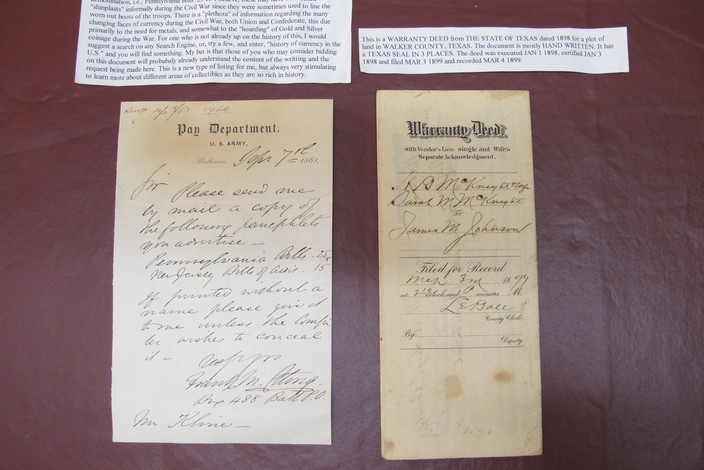 "shinplasts" informally during the Civil War since they were sometimes used to line the
worn out boots of the troops. There is a "plethora" of information regarding the many
changing faces of currency during the Civil War, both Union and Confederate, this due
primarily to the need for metals, and somewhat to the "hoarding" of Gold and Silver
coinage during the War. For one who is not already up on the history of this, I would
suggest a search on any Search Engine, or, try a few, and enter, "history of currency in the
U.S." and you will find something. My bet is that those of you who may consider bidding
on this document will probabaly already understand the content of the writting and the
request being made here. This is a new type of listing for me, but always very stimulating
to learn more about different areas of collectibles as they are so rich in history.
This is a WARRANTY DEED from THE STATE OF TEXAS dated 1898 for a plot of
land in WALKER COUNTY, TEXAS. The document is mostly HAND WRITTEN. It has
a TEXAS SEAL IN 3 PLACES. The deed was executed JAN 1 1898, certified JAN 3
1898 and filed MAR 3 1899 and recorded MAR 4 1899.
Pay Department,
U. S. ARMY,
Baltimore, Sep 7th 186
Sir Please send me
by mail a copy of
the following pamphlets
you advertise —
Pennsylvania Bills . 25c
New Jersey Bills of 15
If printed without a
name please give it
to me unless the compi-
ler wishes to conceal
it —
Frank M.
Box 488 Balto P.O.
Mr Kline —
Warranty Deed
with Vendor's Lien—single and Wife's
Separate Acknowledgment.
McKnight
Sarah M McKnight
To
James M Johnson
Filed for Record
Mch 3rd 1899
at o'clock and minutes M.
County Clerk
By
Deputy